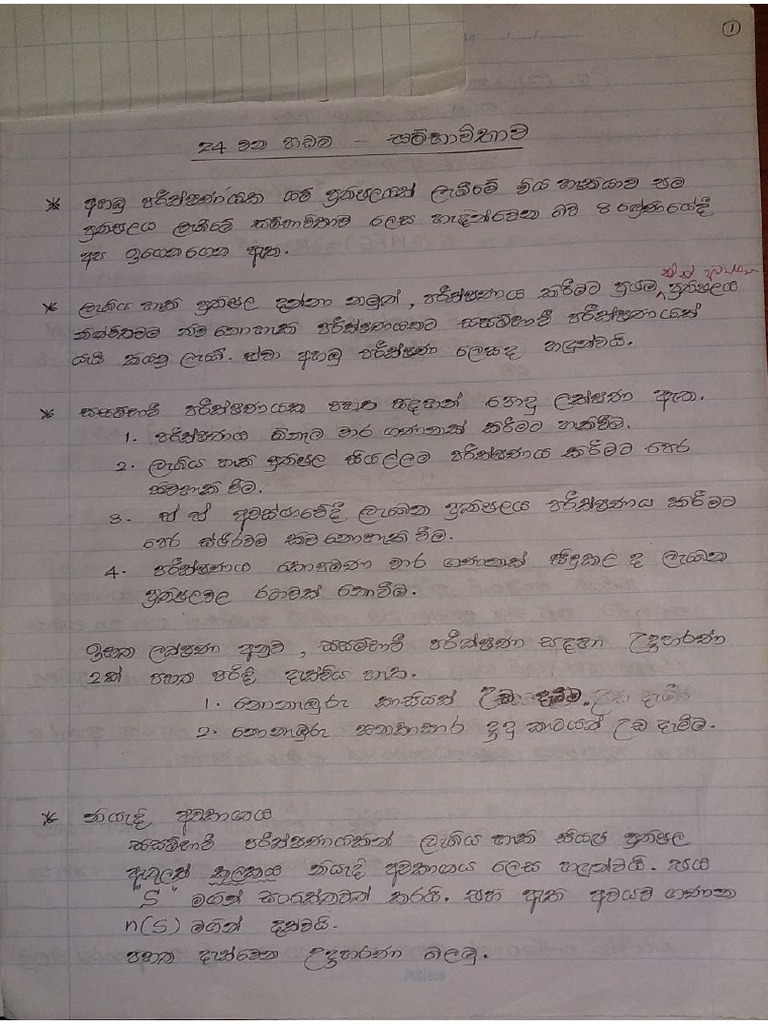 1
24 වන පාඩම - සම්භාවිතාව
* අහඹු පරීක්ෂණයක යම් ප්‍රතිඵලයක් ලැබීමේ විය හැකියාව එම
ප්‍රතිඵලය ලැබීමේ සම්භාවිතාව ලෙස හැඳින්වෙන බව 8 ශ්‍රේණියේදී
අප ඉගෙනගෙන ඇත.
* ලැබිය හැකි ප්‍රතිඵල දන්නා නමුත්, පරීක්ෂණය කිරීමට ප්‍රථම ප්‍රතිඵලය
නිශ්චිතවම කිව නොහැකි පරීක්ෂණයකට සසම්භාවී පරීක්ෂණයක්
යැයි කියනු ලැබේ. ඒවා අහඹු පරීක්ෂණ ලෙසද හඳුන්වයි.
* සසම්භාවී පරීක්ෂණයක පහත සඳහන් පොදු ලක්ෂණ ඇත.
1. පරීක්ෂණය ඕනෑම වාර ගණනක් කිරීමට හැකිවීම.
2. ලැබිය හැකි ප්‍රතිඵල සියල්ලම පරීක්ෂණය කිරීමට පෙර
කිවහැකි වීම.
3. ඒ ඒ අවස්ථාවේදී ලැබෙන ප්‍රතිඵලය පරීක්ෂණය කිරීමට
පෙර ස්ථිරවම කිව නොහැකි වීම.
4. පරීක්ෂණය කොපමණ වාර ගණනක් සිදුකල ද ලැබෙන
ප්‍රතිඵලවල රටාවක් නොවීම.
ඉහත ලක්ෂණ අනුව, සසම්භාවී පරීක්ෂණ සඳහා උදාහරණ
2ක් පහත පරිදි දැක්විය හැක.
1. නොනැඹුරු කාසියක් උඩ දැමීම.
2. නොනැඹුරු ඝනකාකාර දාදු කැටයක් උඩ දැමීම.
* නියැදි අවකාශය
සසම්භාවී පරීක්ෂණයකින් ලැබිය හැකි සියළු ප්‍රතිඵල
ඇතුලත් කුලකය නියැදි අවකාශය ලෙස හඳුන්වයි. එය
"S" මගින් සංකේතවත් කරයි. එහි ඇති අවයව ගණන
n(S) මගින් දක්වයි.
පහත දැක්වෙන උදාහරණ බලමු.